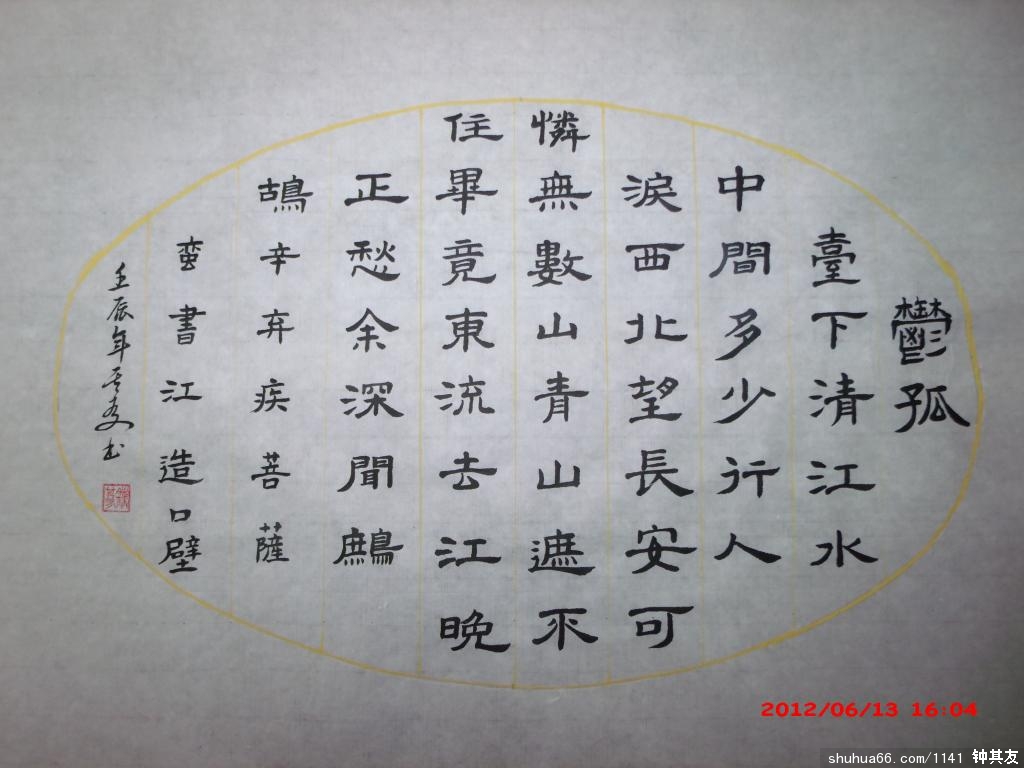 鬱孤
臺下清江水
中間多少行人
淚西北望長安可
憐無數山青山遮不
住畢竟東流去江晚
正愁余深聞鷓
鴣辛弃疾菩薩
蛮書江造口壁
壬辰年其友书
2012/06/13 16:04
shuhua66.com/1141 钟其友